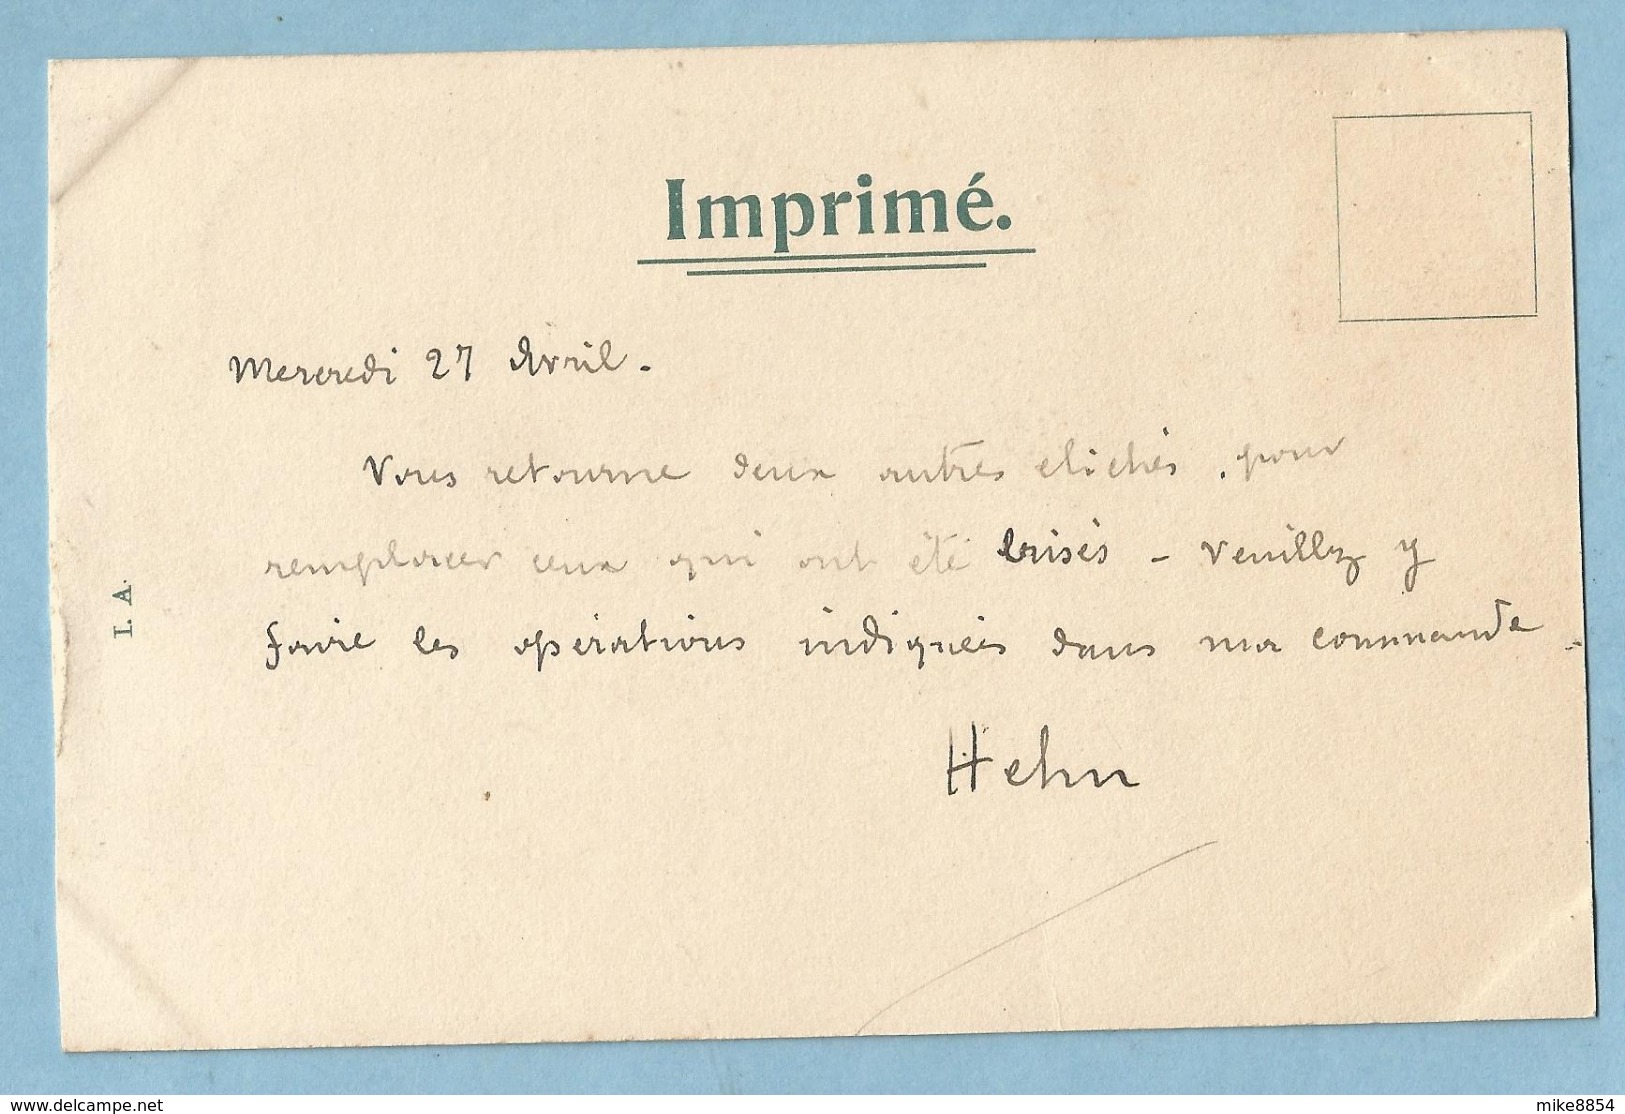 Imprimé.
Mercredi 27 Avril.
Vous retourne deux autres clichés, pour
remplacer ceux qui ont été brisés - Veuillez y
faire les opérations indiquées dans ma commande.
Hehn
I. A.
www.delcampe.net
mike8854